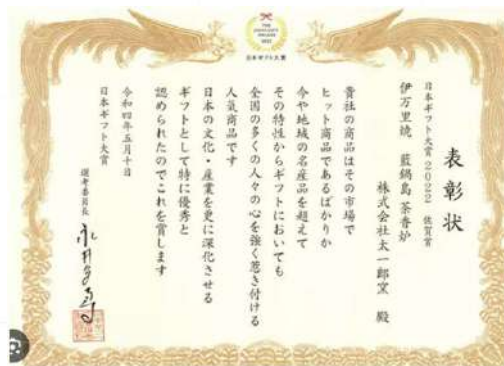 日本ギフト大賞
表彰状
日本ギフト大賞2022 佐賀賞
伊万里焼 藍鍋島 茶香炉
株式会社太一郎窯 殿
貴社の商品はその市場で
ヒット商品であるばかりか
今や地域の名産品を超えて
その特性からギフトにおいても
全国の多くの人々の心を強く惹き付ける
人気商品です
日本の文化・産業を更に深化させる
ギフトとして特に優秀と
認められたのでこれを賞します
令和四年五月十日
日本ギフト大賞
選考委員長